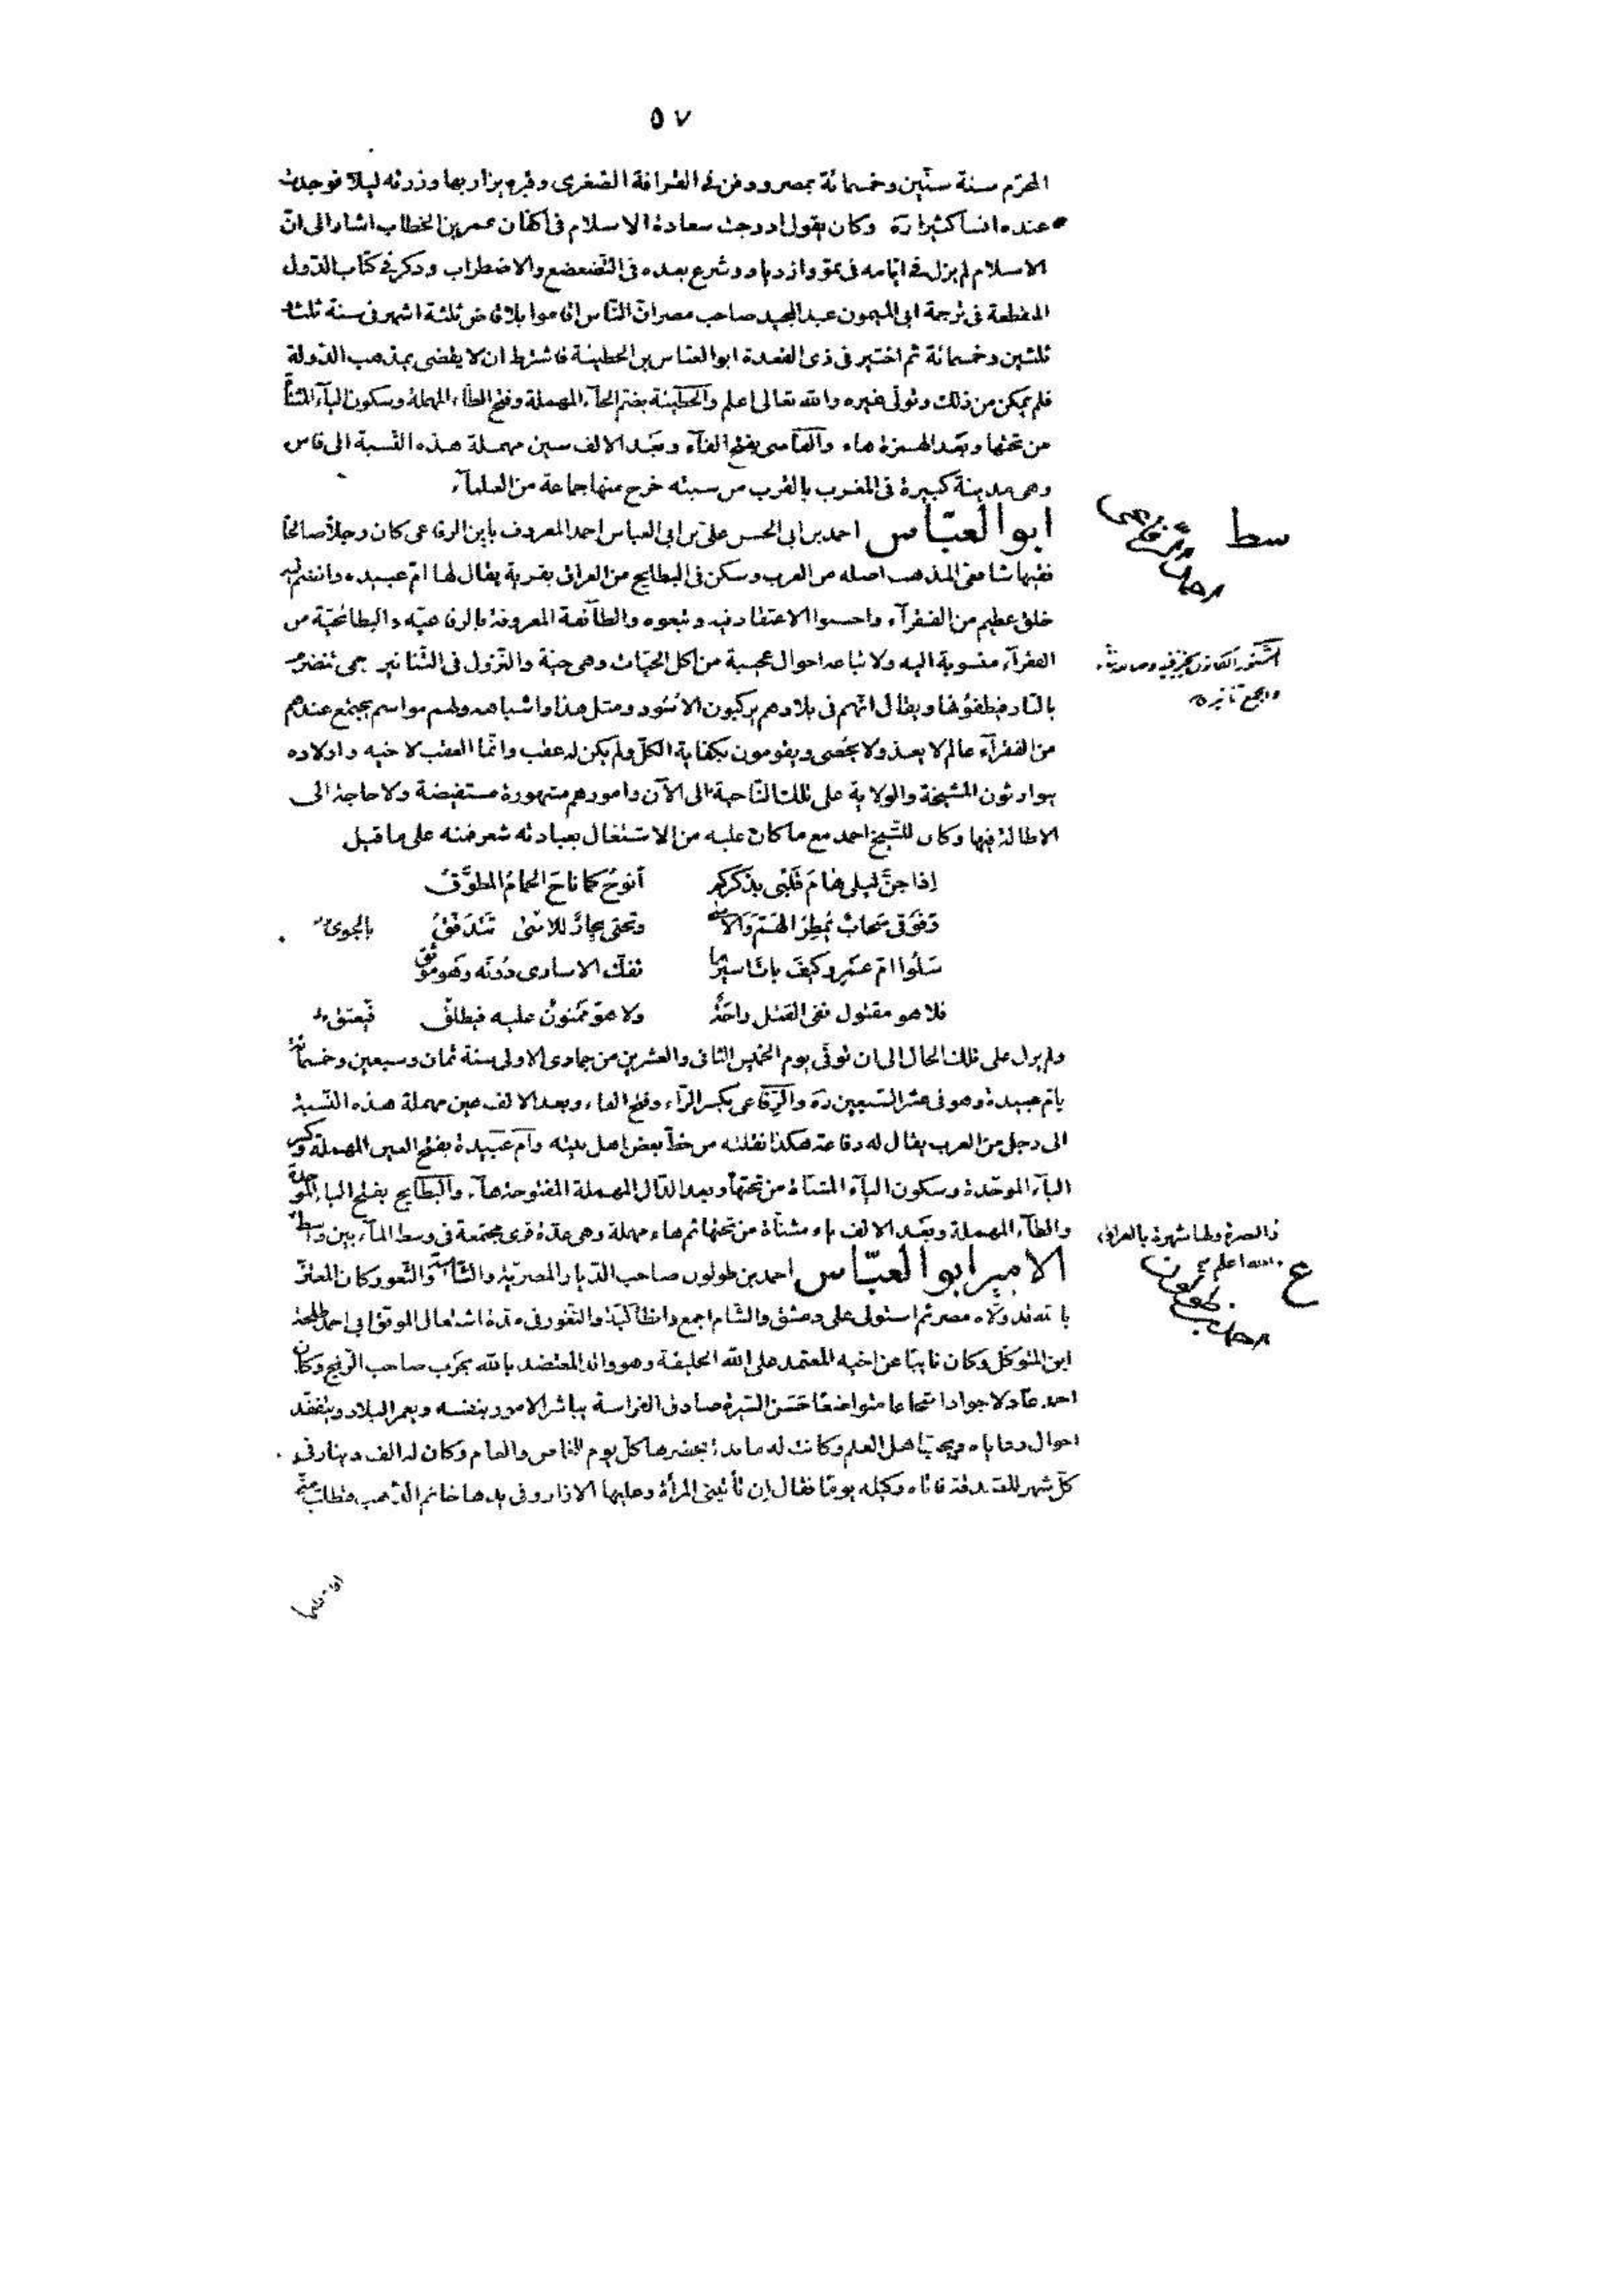 ٥٧
المحرّم سنة ستّين وخمسمائة بمصر ودفن فى القرافة الصّغرى وقبره يزار بها وزرته ليلاً فوجدت
عنده انساً كثيرا رَه وكان يقول ادرجت سعادة الاسلام فى اكفان عمر بن الخطاب اشار الى انّ
الاسلام لم يزل فى ايّامه فى نموّ وازدياد وشرع بعده فى التّضعضع والاضطراب وذكر فى كتاب الدّول
المنقطعة فى ترجمة ابى الميمون عبد المجيد صاحب مصر انّ النّاس اقاموا بلا قاض ثلثة اشهر فى سنة ثلث و
ثلثين وخمسمائة ثم اختير فى ذى القعدة ابو العبّاس بن الحطيئة فاشترط ان لا يقضى بمذهب الدّولة
فلم يمكن من ذلك وتولّى غيره والله تعالى اعلم والحطيئة بضمّ الحآء المهملة وفتح الطآء المهملة وسكون اليآء المثنّاة
من تحتها وبَعد الهمزة هاء والفَاسى بفتح الفآء وبَعد الالف سين مهملة هذه النّسبة الى فاس
وهى مدينة كبيرة فى المغرب بالقرب من سبته خرج منها جماعة من العلمآء
سط
ابو العبّاس احمد بن ابى الحسن علىّ بن ابى العباس احمد المعروف بابن الرفاعى كان رجلاً صالحًا
فقيها شافعىّ المذهب اصله من العرب وسكن فى البطايح من العراق بقرية يقال لها امّ عبيده وانضم اليه
خلق عظيم من الفقرآء واحسنوا الاعتقاد فيه وتبعوه والطآئفة المعروفة بالرفاعيّه والبطائحيّة من
الفقرآء منسوبة اليه ولاتباعه احوال عجيبة من اكل الحيّات وهى حيّة والنّزول فى التّنانير وهى تتضرّم
بالنّار فيطفؤنها ويقال انّهم فى بلادهم يركبون الاُسُود ومثل هذا واشباهه ولهم مواسم يجتمع عندهم
من الفقرآء عالم لا يعدّ ولا يُحصى ويقومون بكفاية الكلّ ولم يكن له عقب وانّما العقب لاخيه واولاده
يتوارثون المشيخة والولاية على تلك النّاحية الى الآن وامورهم مشهورة مستفيضة ولا حاجة الى
الاطالة فيها وكان للشّيخ احمد مع ما كان عليه من الاشتغال بعبادته شعر فمنه على ما قيل
إذا جنّ ليلى هَامَ قَلبى بذكركم أنوحُ كما ناحَ الحمامُ المطوَّقُ
وَفَوقى سَحابٌ يُمطِرُ الهَمَّ وَالاَسى وتحتى بحارٌ للاسى تَتَدَفّقُ بالجوى
سَلُوا امّ عَمرٍو كيفَ باتَ اسيرُها تفكّ الاسارى دُونَه وَهو موثَق
فلا هو مقتول ففى القتل راحَةٌ ولا هوَ مَمنونٌ عليه فيطلقُ فيُعتق
ولم يزل على تلك الحال الى ان توفّى يوم الخميس الثانى والعشرين من جمادى الاولى سنة ثمان وسبعين وخمسمائة
بامّ عبيدة وهو فى عشر السّبعين رَه والرّفاعى بكسر الرّآء وفتح الفاء وبعد الالف عين مهملة هذه النّسبة
الى رجل من العرب يقال له رفاعة هكذا نقلته من خطّ بعض اهل بيته وامّ عَبيدة بفتح العين المهملة وكسر
البآء الموحّدة وسكون اليآء المثنّاة من تحتها وبعد الدّال المهملة المفتوحة هآء والبَطايح بفتح الباء الموحّدة
والطآء المهملة وبَعد الالف ياء مثنّاة من تحتها ثم حاء مهملة وهى عدّة قرى مجتمعة فى وسط المآء بين واسط
والبصرة ولها شهرة بالعراق
والله اعلم
ع
الامير ابو العبّاس احمد بن طولون صاحب الدّيار المصريّة والشّاميّة والثّغور كان المعتزّ
بالله قد ولّاه مصر ثم استولى على دمشق والشّام اجمع وانطاكيّة والثّغور فى مدّة اشتغال الموفّق ابى احمد طلحة
ابن المتوكّل وكان نايبًا عن اخيه المعتمد على الله الخليفة وهو والد المعتضد بالله بحَرب صاحب الزّنج وكان
احمد عَادلا جوادا شجاعا متواضعًا حَسَن السّيرة صادق الفراسة يباشر الامور بنفسه ويعمر البلاد ويتفقّد
احوال رعاياه ويحبّ اهل العلم وكانت له مايدة يحضرها كلّ يوم الخاصّ والعامّ وكان له الف دينار فى
كلّ شهر للصّدقة فاتاه وكيله يومًا فقال إن تأتينى المرأة وعليها الازار وفى يدها خاتم الذّهب فتطلب منّى